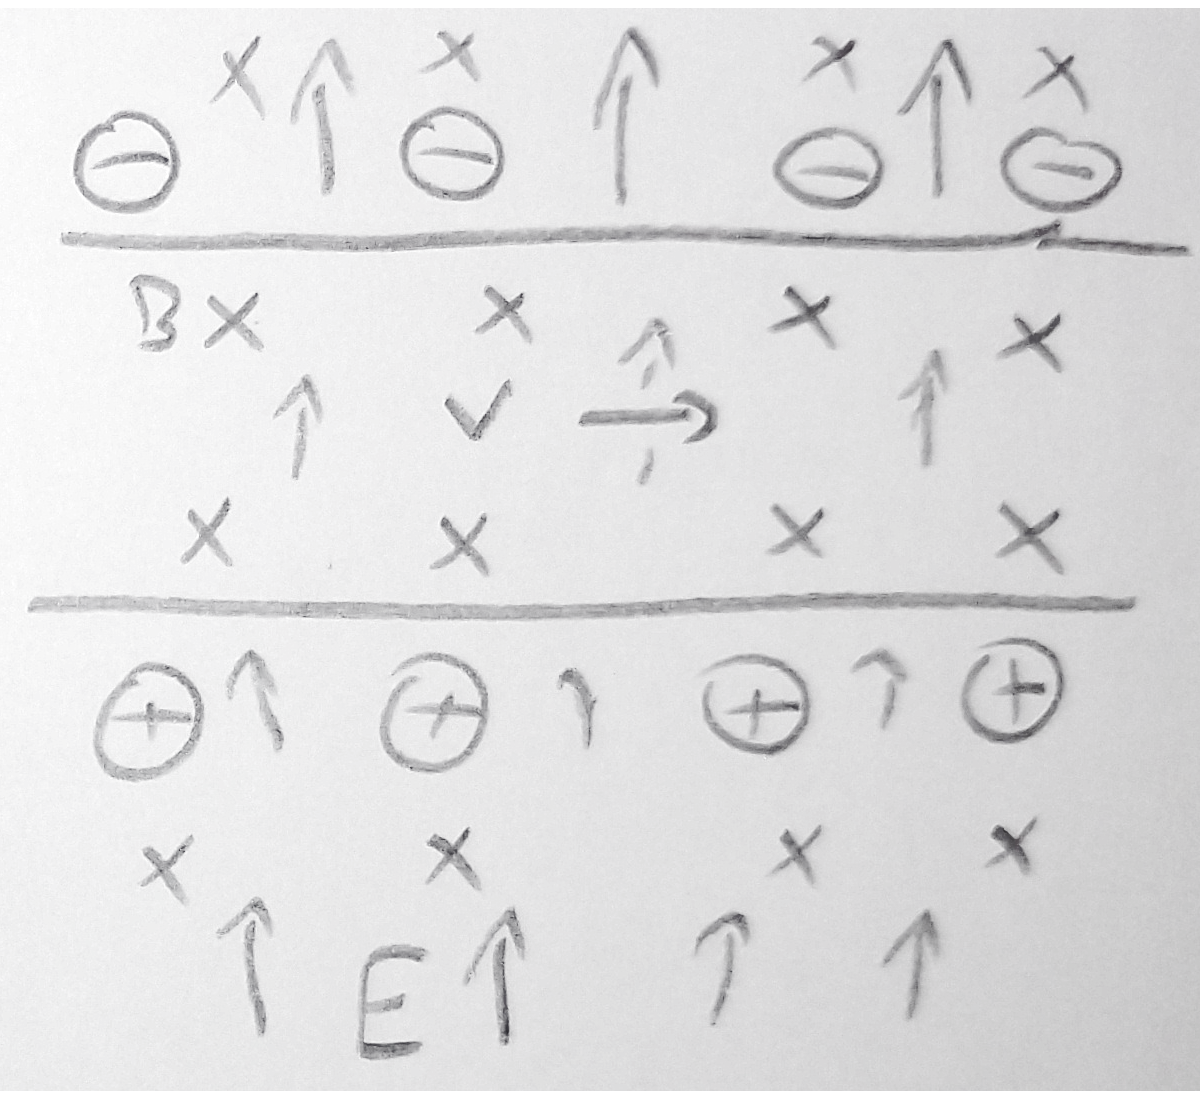 × × × ×
− − − −
B × × × ×
v
× × × ×
+ + + +
× × × ×
E